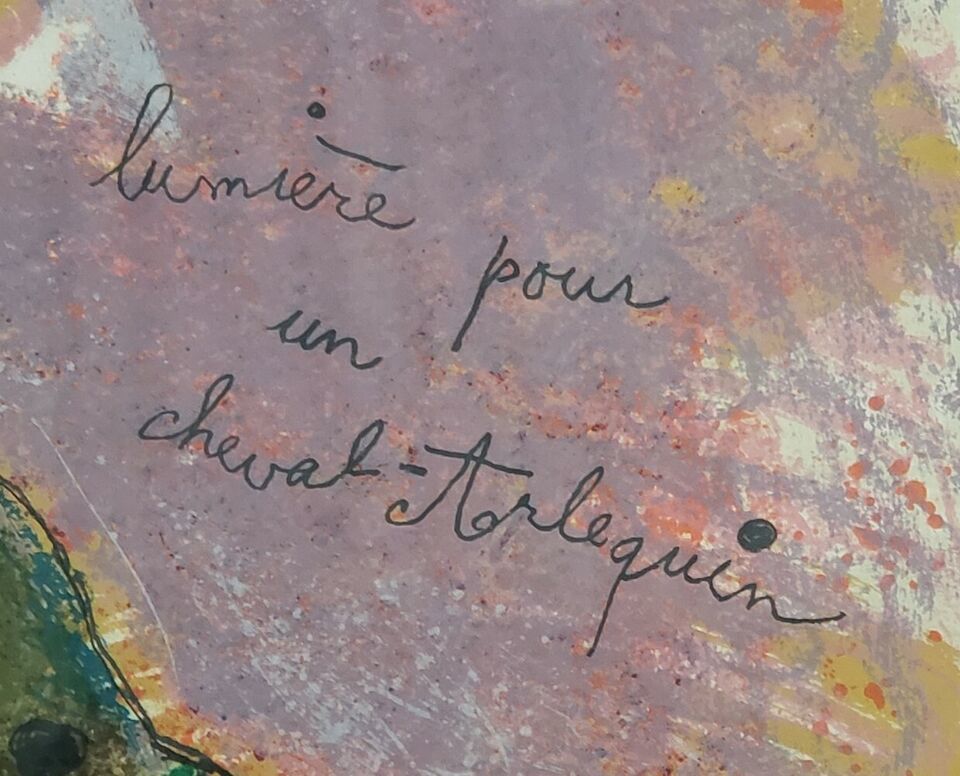 lumière
pour
un
cheval-Arlequin